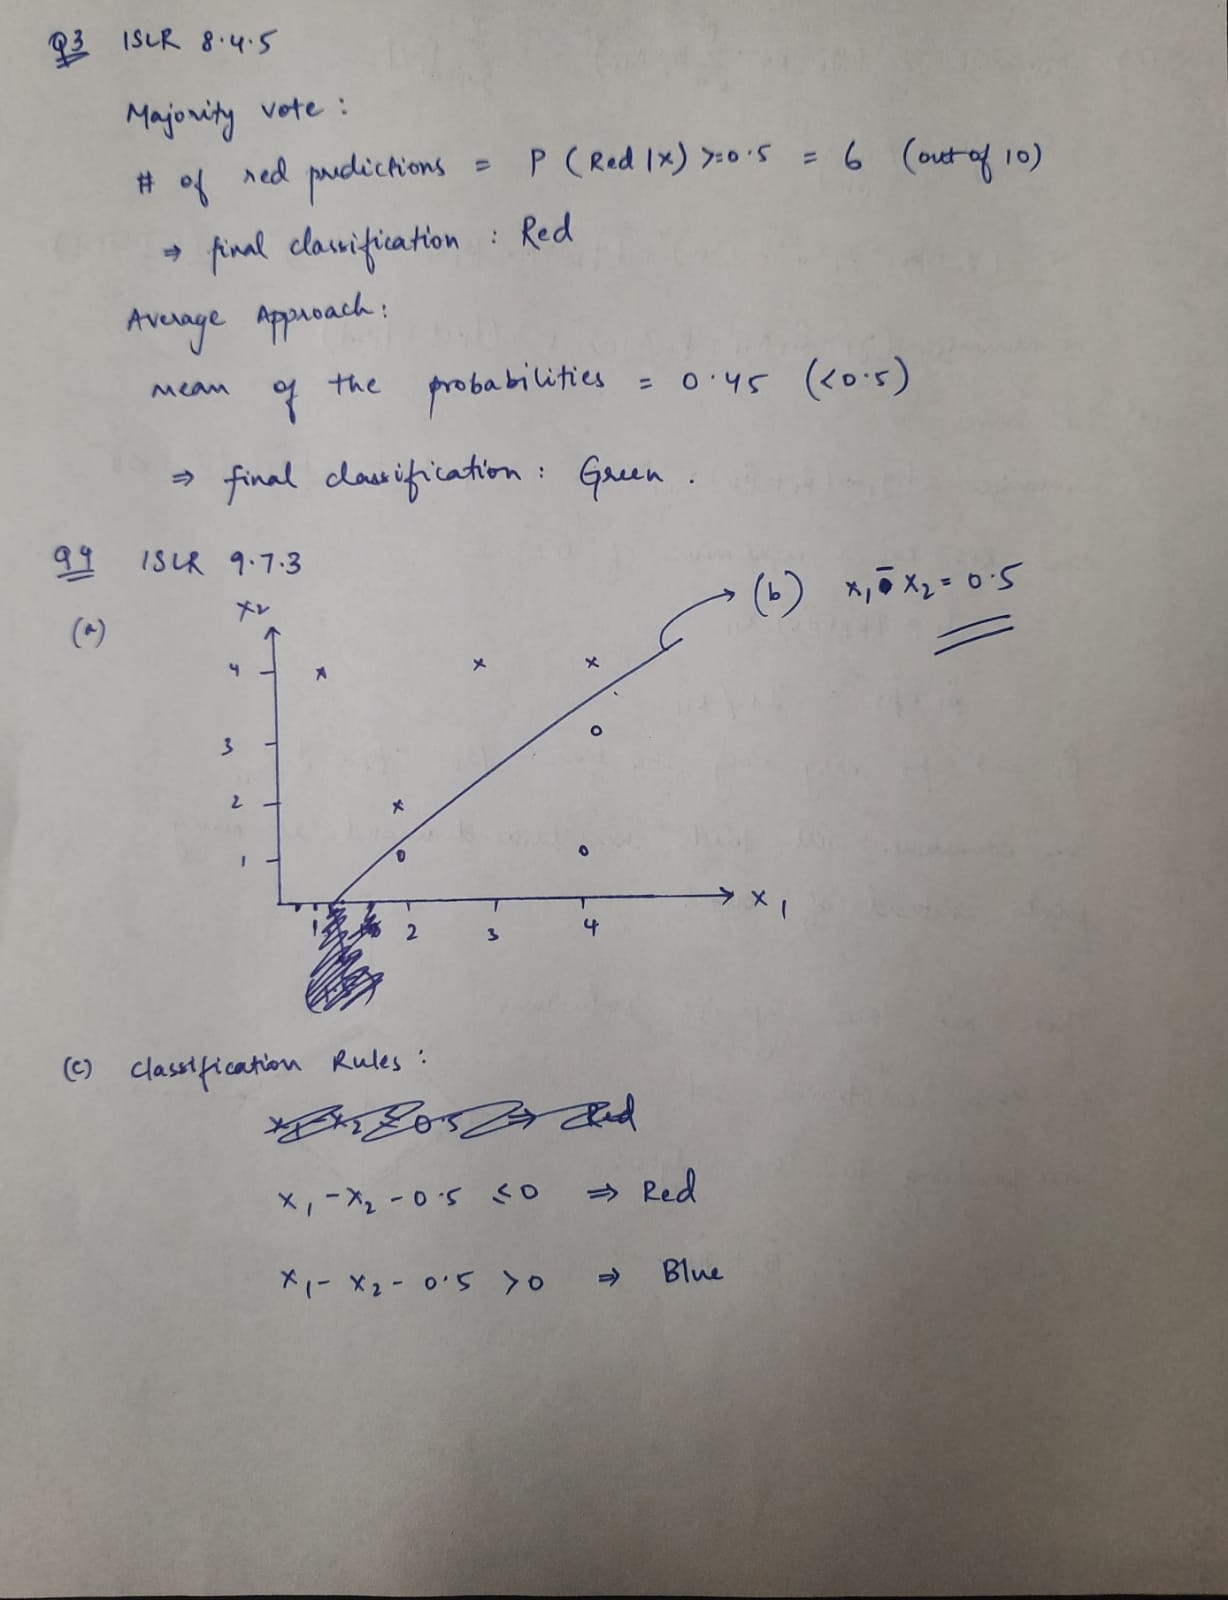 Q3 ISLR 8.4.5
Majority vote :
# of red predictions = P ( Red | X ) >=0.5 = 6 (out of 10)
⇒ final classification : Red
Average Approach :
mean of the probabilities = 0.45 (<0.5)
⇒ final classification : Green .
Q4 ISLR 9.7.3
(a)
X2
(b) x1 - x2 = 0.5
4
3
2
1
1 2 3 4
x1
(c) Classification Rules :
x1 - x2 - 0.5 ≤ 0 ⇒ Red
x1 - x2 - 0.5 > 0 ⇒ Blue